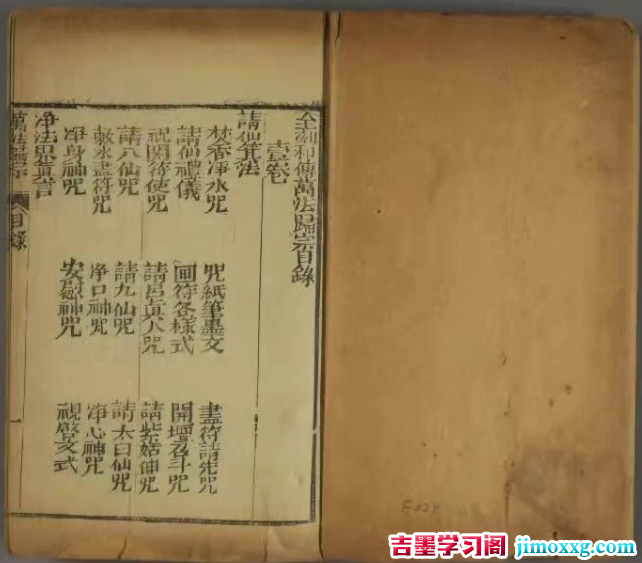 全 傳萬法歸宗目錄
壹卷
請仙箕法
焚香凈水咒 咒紙筆墨文 畫符請先咒
請仙禮儀 画符各樣式 開壇召斗咒
祝關符使咒 請呂真人咒 請紫姑伸咒
請八仙咒 請九仙咒 請太白仙咒
敕水畫符咒 凈口神咒 凈心神咒
凈身神咒 安慰神咒 祝啓文式
凈法界真言
萬法歸宗 目錄
吉墨学习阁 jimoxxg.com